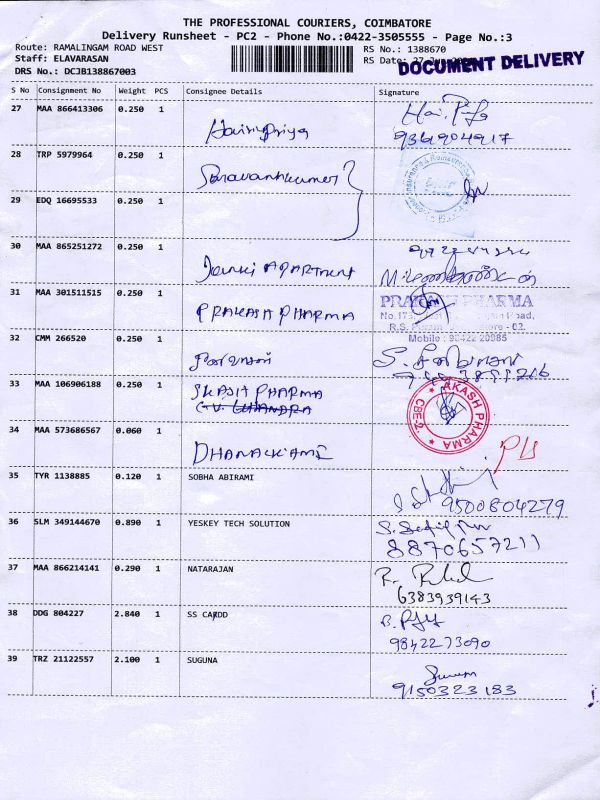 THE PROFESSIONAL COURIERS, COIMBATORE
Delivery Runsheet - PC2 - Phone No.:0422-3505555 - Page No.:3
Route: RAMALINGAM ROAD WEST
RS No.: 1388670
Staff: ELAVARASAN
RS Date:
DOCUMENT DELIVERY
DRS No.: DCJB138867003
S No Consignment No Weight PCS Consignee Details Signature
27 MAA 866413306 0.250 1
Haripriya
9361904917
28 TRP 5979964 0.250 1
Saravanhkumer
29 EDQ 16695533 0.250 1
30 MAA 865251272 0.250 1
Janki APARTMENT
31 MAA 301511515 0.250 1
PRAKASH PHARMA
PRAKASH PHARMA
Mobile : 98422 20985
32 CMM 266520 0.250 1
33 MAA 106906188 0.250 1
AKASH PHARMA
CBE-2.
34 MAA 573686567 0.060 1
35 TYR 1138885 0.120 1 SOBHA ABIRAMI
9500804279
36 SLM 349144670 0.890 1 YESKEY TECH SOLUTION
8870657211
37 MAA 866214141 0.290 1 NATARAJAN
6383939143
38 DDG 804227 2.840 1 SS CARDD
9842273090
39 TRZ 21122557 2.100 1 SUGUNA
9150323183